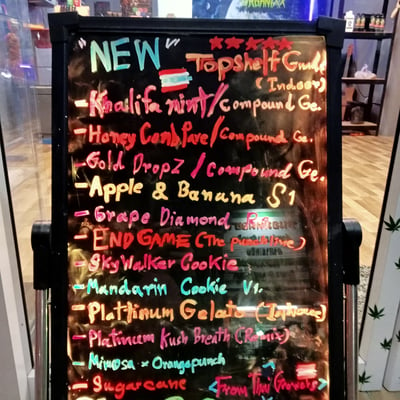 "NEW"
Topshelf Grade
(Indoor)
- Khalifa mint / Compound Ge.
- Honey Comb Pare / Compound Ge.
- Gold DropZ / Compound Ge.
- Apple & Banana S1
- Grape Diamond
- END GAME (The
- SkyWalker Cookie
- Mandarin Cookie V1.
- Plattinum Gelato (Inhouse)
- Platinum Kush Breath (Remix)
- Mimosa x Orangepunch
- Sugarcane <From Thai Growers>